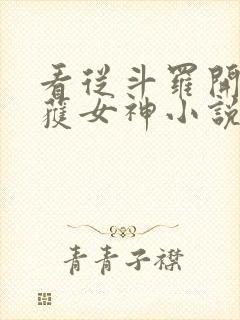 看從斗羅開
獲女神小説
青青子襟